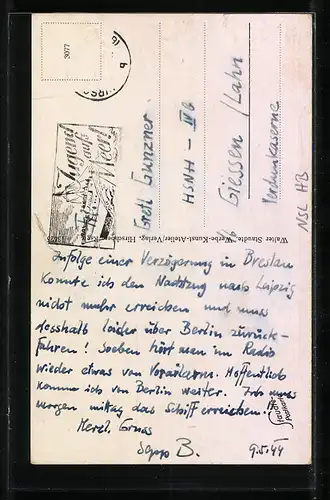 3077
Jugend
aufs
Meer!
Gretl Gunzner
HSNH - IVb
Giessen / Lahn
Verdunkaserne
NSL HB
Walter Straube, Werbe-Kunst-Atelier/Verlag, Hirschberg
Infolge einer Verzögerung in Breslau
konnte ich den Nachtzug nach Leipzig
nicht mehr erreichen und muss
desshalb leider über Berlin zurück-
fahren! Soeben hört man im Radio
wieder etwas von Voralarm. Hoffentlich
komme ich von Berlin weiter. Ich muss
morgen mittag das Schiff erreichen.
Herzl. Gruss
Sepp B. 9.5.44
Postkarte